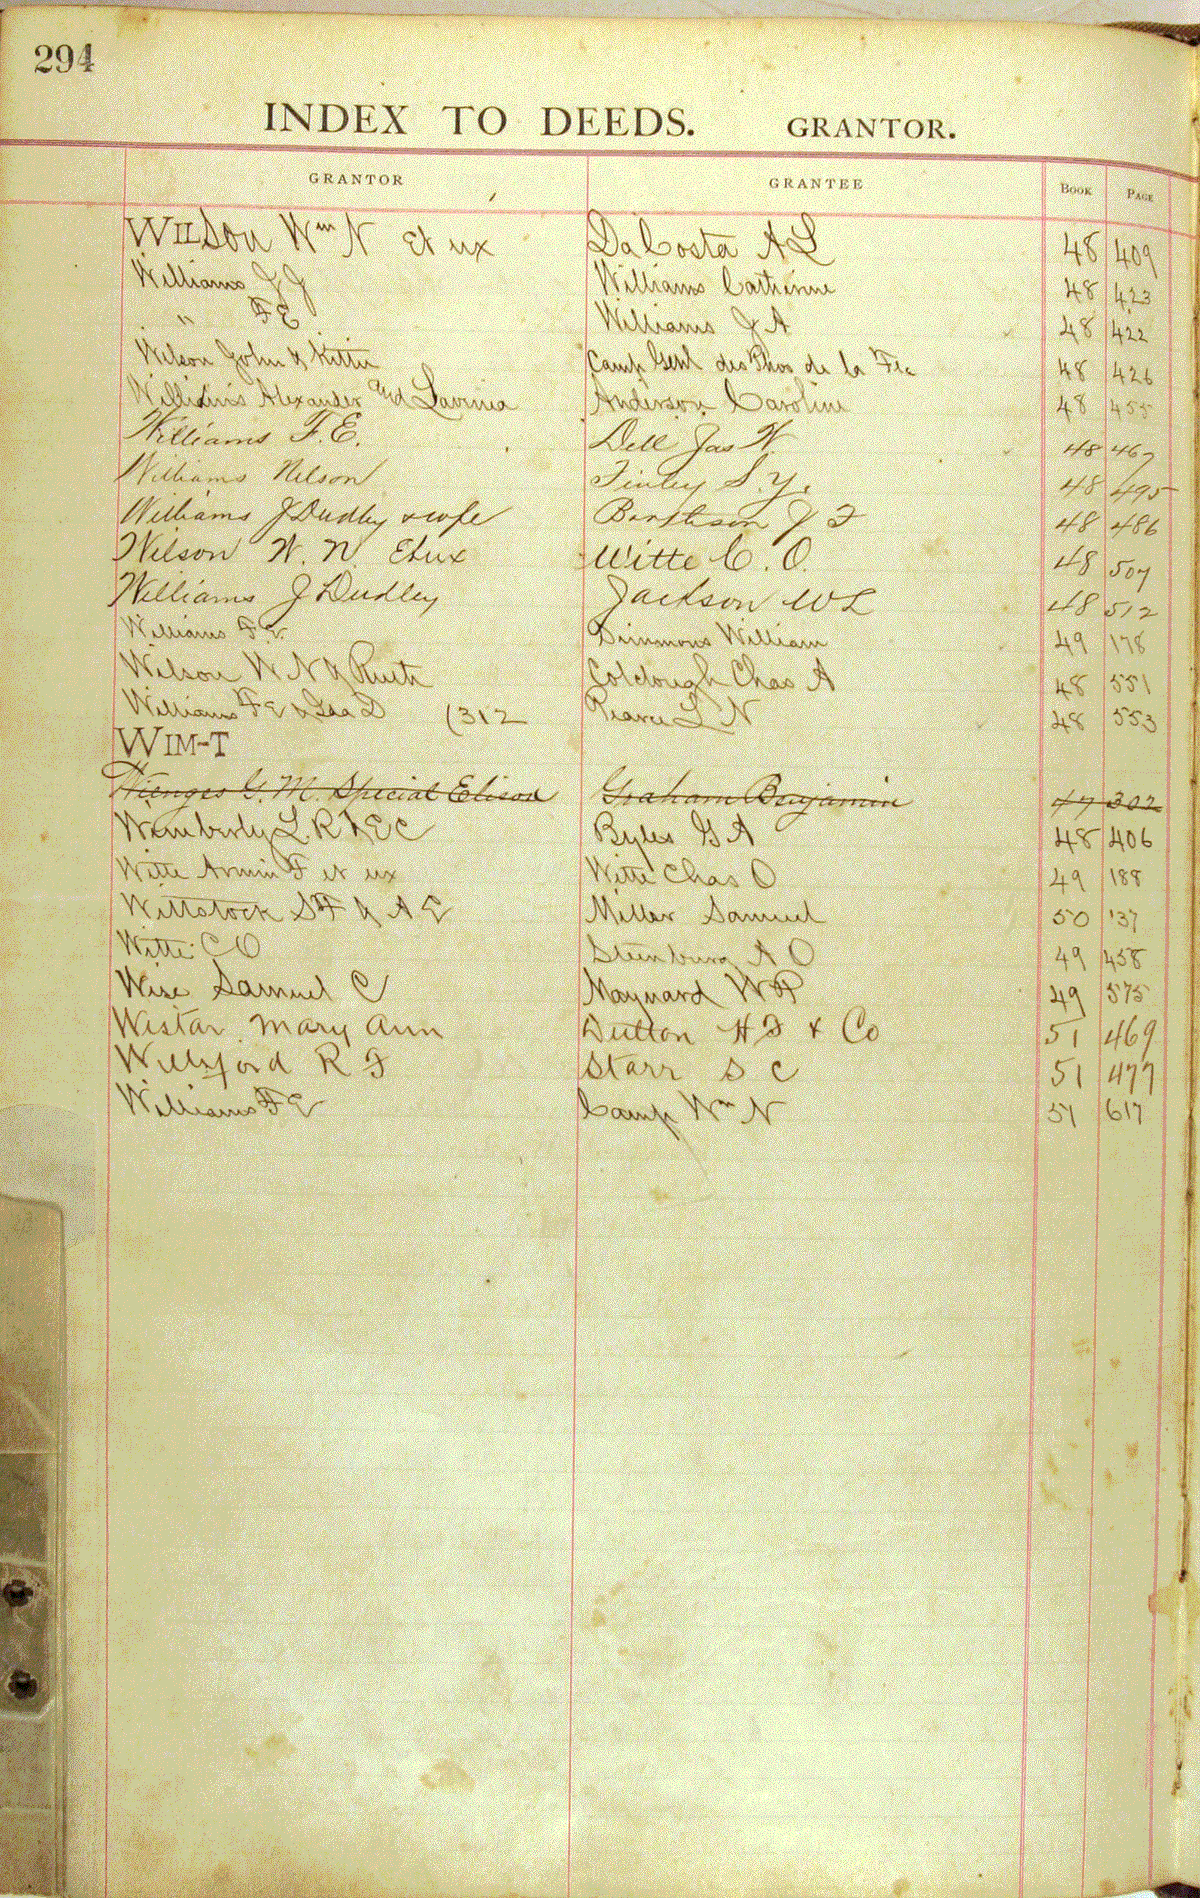 294
INDEX TO DEEDS. GRANTOR.
GRANTOR GRANTEE BOOK PAGE
WILSON Wm N et ux DaCosta A L 48 409
Williams J J Williams Catherine 48 423
" F E Williams J A 48 422
Wilson John & Kittie Camp Genl des Phos de la Fla 48 426
Williams Alexander and Lavinia Anderson Caroline 48 455
Williams F. E. Dell Jas W. 48 467
Williams Nelson Finley S. Y. 48 495
Williams J Dudley & wife J F 48 486
Wilson W. N. Etux Witte C. O. 48 507
Williams J Dudley Jackson W L 48 512
Williams F E Simmons William 49 178
Wilson W N & Ruth Colclough Chas A 48 551
Williams F E & D (312 Pearce L N 48 553
WIM-T
G. M. Special Elisod Graham Benjamin 47 302
Wimberly L R & E C Byles G A 48 406
Witte Armin F et ux Witte Chas O 49 188
Wittstock S F & A E Miller Samuel 50 137
Witte C O Steinburg A O 49 458
Wise Samuel C Maynard W P 49 575
Wistar Mary Ann Dutton H F & Co 51 469
R F Starr S C 51 477
Williams F E Camp Wm N 51 617